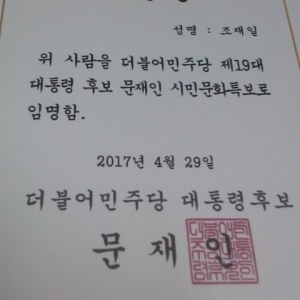 성명 : 조재일
위 사람을 더불어민주당 제19대
대통령 후보 문재인 시민문화특보로
임명함.
2017년 4월 29일
더불어민주당 대통령후보
문 재 인